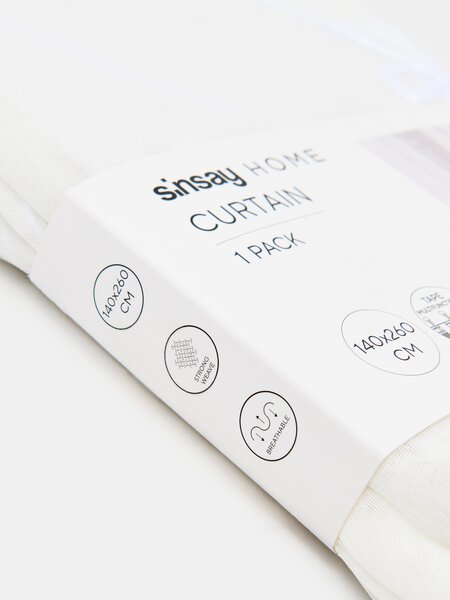 sinsay HOME
CURTAIN
1 PACK
140x260
CM
TAPE
140x260
CM
STRONG
WEAVE
BREATHABLE